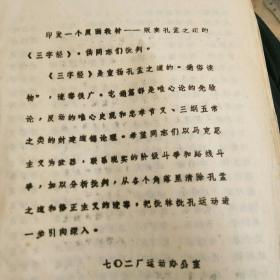 印发一个反面教材——贩卖孔孟之道的
《三字经》。供同志们批判。
《三字经》是宣扬孔孟之道的"通俗读
物",流毒很广。它通篇都是唯心论的先验
论，反动的唯心史观和忠孝节义、三纲五常
之类的封建道德伦理。希望同志们以马克思
主义为武器，联系现实的阶级斗争和路线斗
争，加以分析批判，从各个角落里清除孔孟
之道和修正主义的流毒，把批林批孔运动进
一步引向深入。
七〇二厂运动办公室